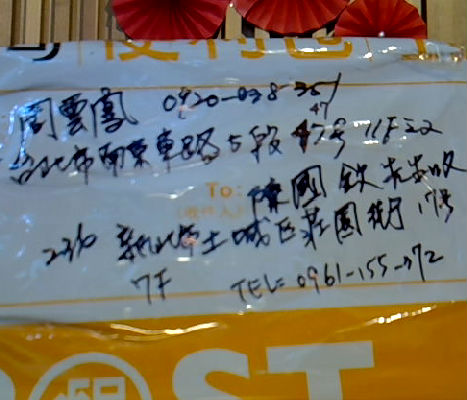 便利包
周雲鳳 0920-038-351
台北市南京東路5段47號11F之2
To:
陳國欽 先生收
(收件人)
236 新北市土城区莊園街17号
7F TEL: 0961-155-772
POST